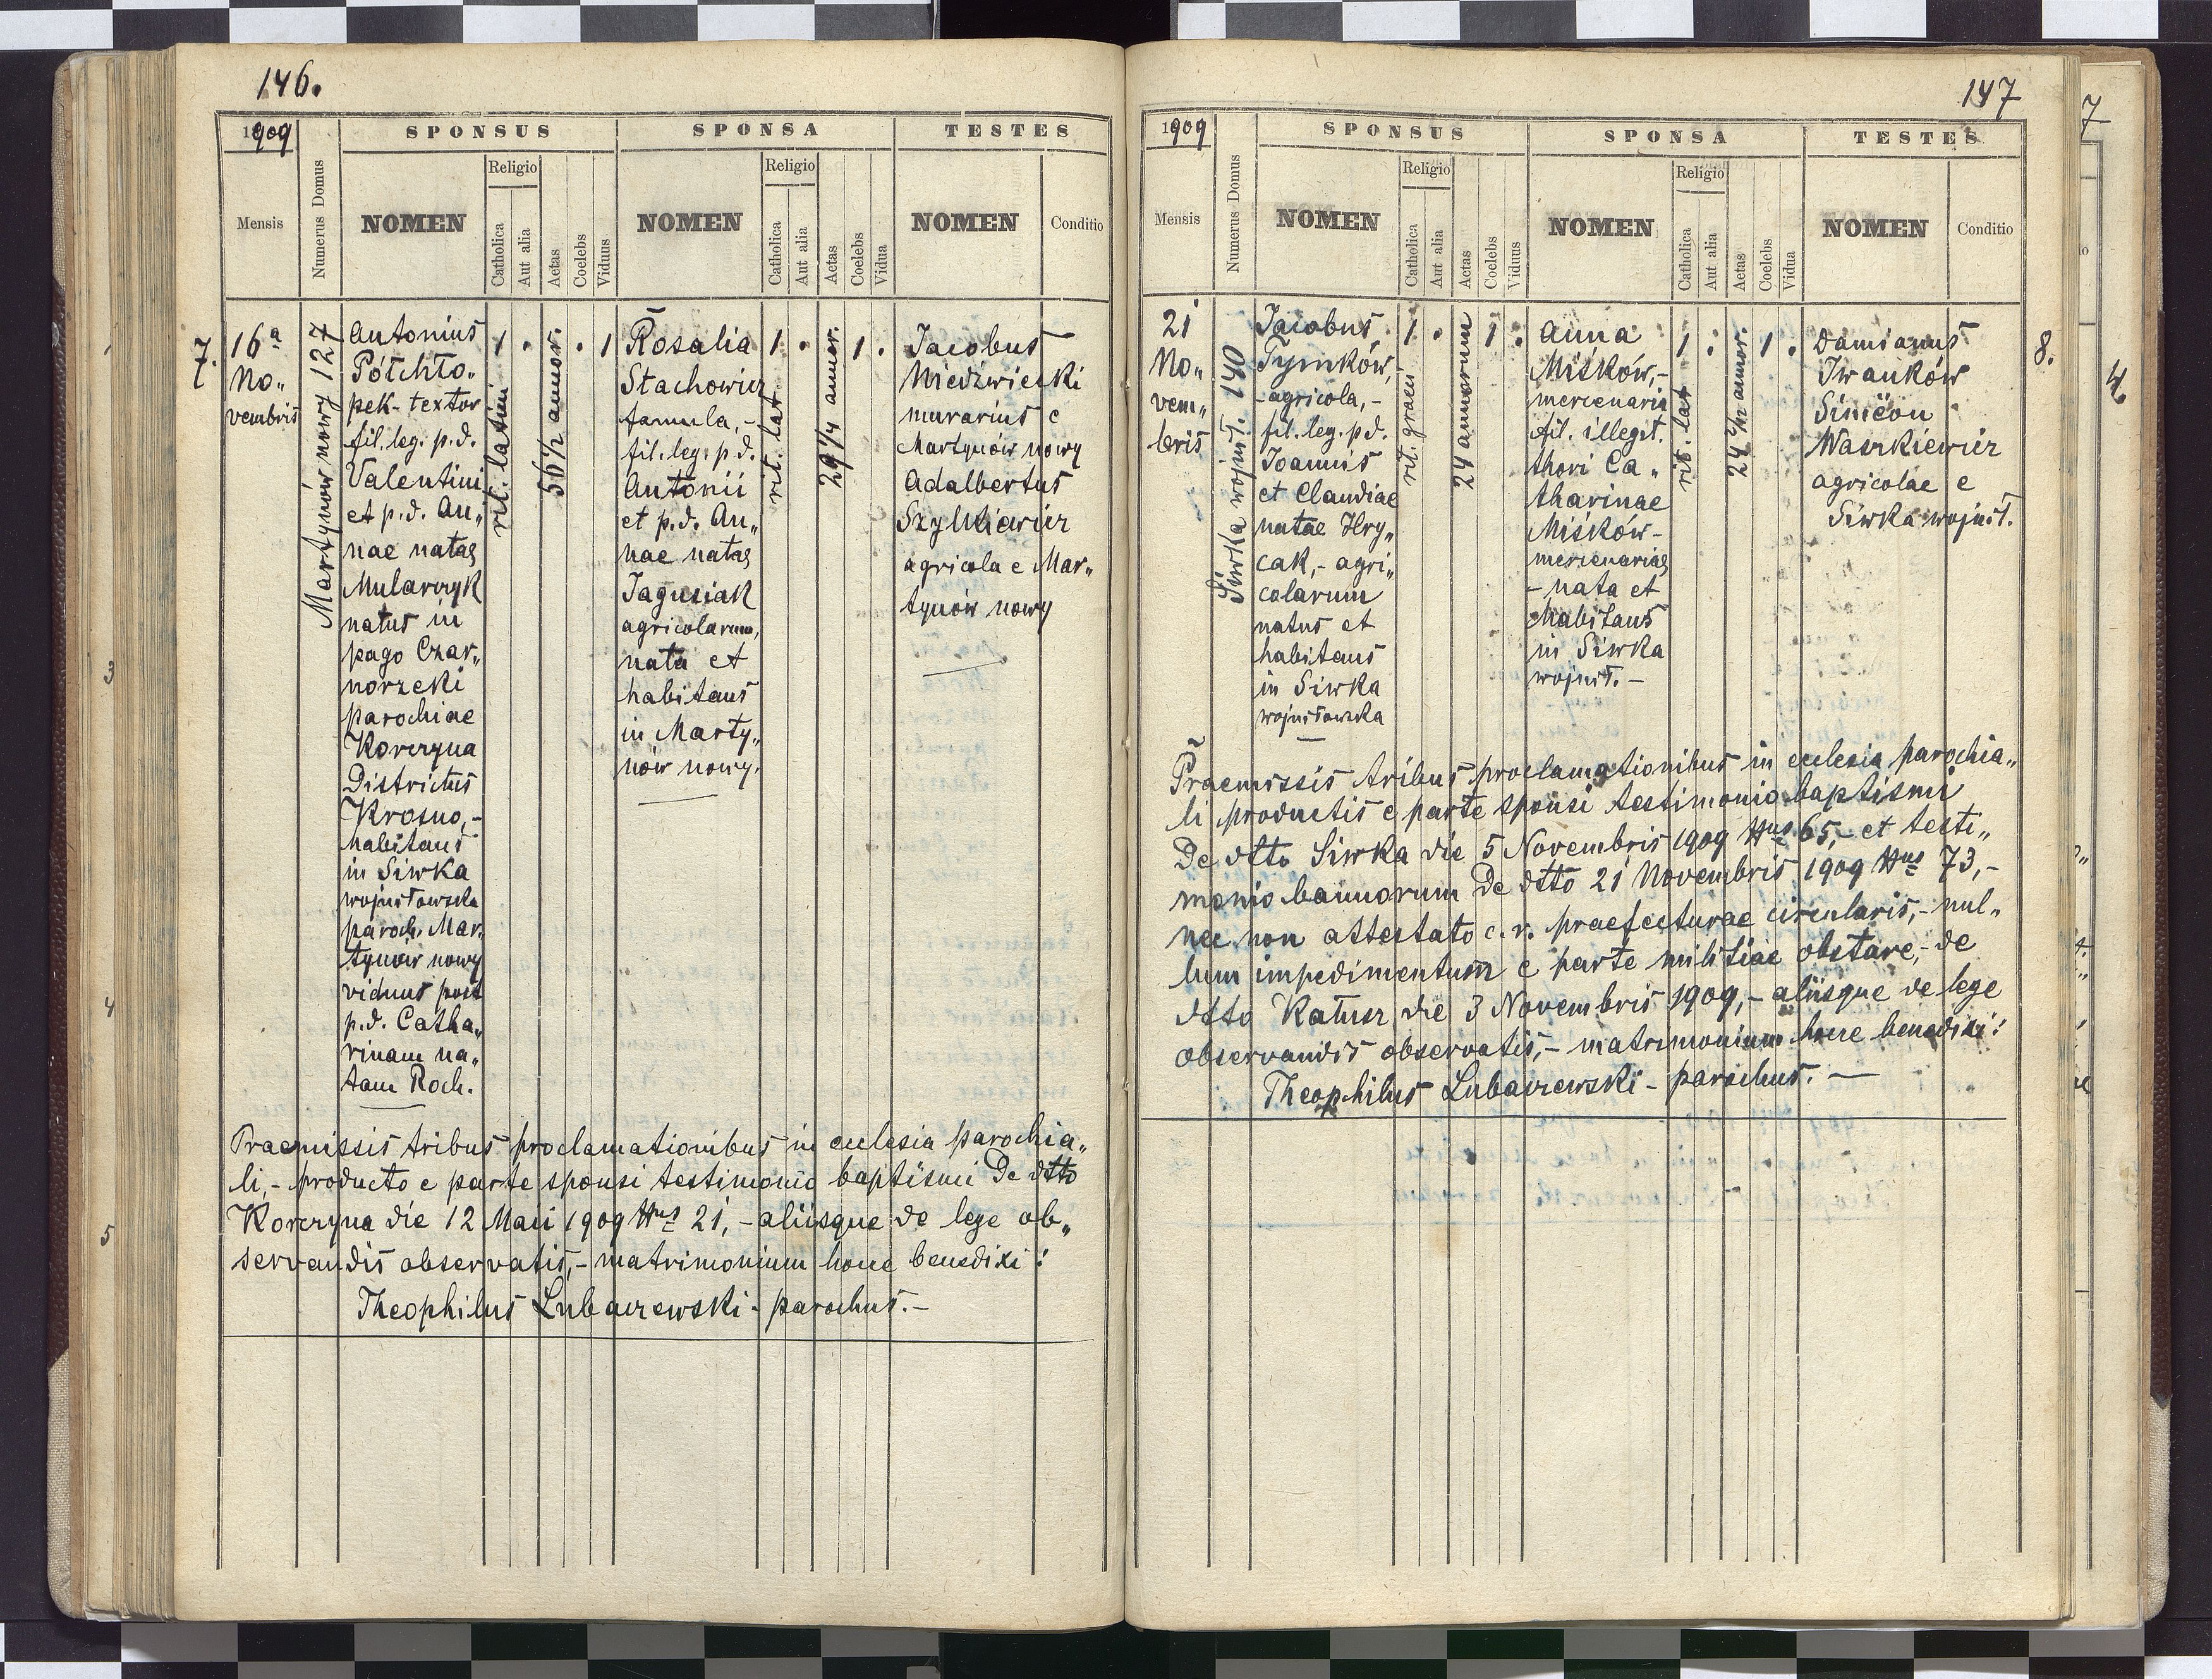 146.
1909
SPONSUS
SPONSA
TESTES
Mensis
Numerus Domus
NOMEN
Religio
Catholica
Aut alia
Aetas
Coelebs
Viduus
NOMEN
Religio
Catholica
Aut alia
Aetas
Coelebs
Vidua
NOMEN
Conditio
7.
16ª
No„
vembris
Martynów nowy 127
Antonius
Półchło„
pek - textor
fil. leg. p.d.
Valentini
et p.d. An„
nae natae
Mularczyk
natus in
pago Czar„
norzeki
parochiae
Korczyna
Districtus
Krosno,-
habitans
in Siwka
wojniłowska
paroch. Mar„
tynów nowy
viduus post
p.d. Catha„
rinam na„
tam Roch.
1
rit. latini
.
56 1/2 annor.
.
1
Rosalia
Stachowicz
famula,-
fil. leg. p.d.
Antonii
et p.d. An„
nae natae
Jagusiak
agricolarum,
nata et
habitans
in Marty„
nów nowy.
1
rit. lat.
.
29 1/4 annor.
1
.
Jacobus
Niedzwiecki
murarius e
Martynów nowy
Adalbertus
agricola e Mar„
tynów nowy
Praemissis tribus proclamationibus in ecclesia parochia„
li,- producto e parte sponsi testimonio baptismi De dtto
Korczyna die 12 Maii 1909 Nus 21,- aliisque de lege ob„
servandis observatis,- matrimonium hocce benedixi:
Theophilus Lubaczewski - parochus.-
147
1909
SPONSUS
SPONSA
TESTES
Mensis
Numerus Domus
NOMEN
Religio
Catholica
Aut alia
Aetas
Coelebs
Viduus
NOMEN
Religio
Catholica
Aut alia
Aetas
Coelebs
Vidua
NOMEN
Conditio
21
No„
vem„
bris
Siwka wojnił. 140
Jacobus
Tymków,-
- agricola,-
fil. leg. p.d.
Joannis
et Claudiae
natae Hry„
cak,- agri„
colarum
natus et
habitans
in Siwka
wojniłowska
1
rit. graeci
.
24 annorum
1
.
Anna
Miśków,-
mercenaria
fil. illegit.
thori Ca„
tharinae
Miśków-
mercenariae
- nata et
habitans
in Siwka
wojnił.-
1
rit. lat.
.
1
.
Damianus
Iwanków
Simeon
Waszkiewicz
agricolae e
Siwka wojnił.
8.
Praemissis tribus proclamationibus in ecclesia parochia„
li productis e parte sponsi testimonio baptismi
De dtto Siwka die 5 Novembris 1909 Nus 65,- et testi„
monio bannorum De dtto 21 Novembris 1909 Nus 73,-
nec non attestato c.r. praefecturae circularis,- nul„
lum impedimentum e parte militiae obstare,- de
dtto Kałusz die 3 Novembris 1909,- aliisque de lege
observandis observatis,- matrimonium hocce benedixi:
Theophilus Lubaczewski - parochus.-
3
4
5
7
4.